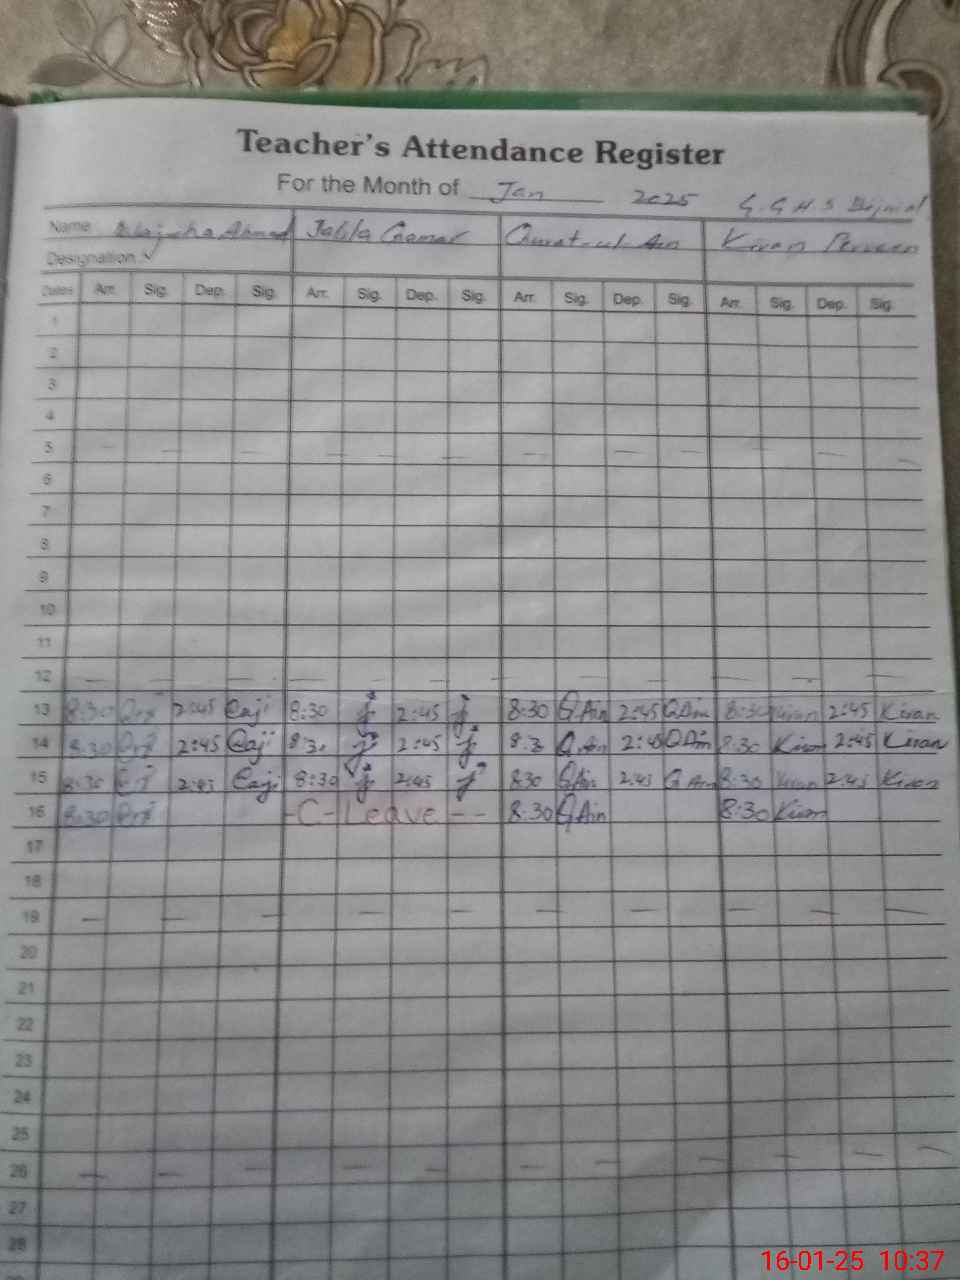 Teacher's Attendance Register
For the Month of Jan 2025 G.G.H.S
Name Ahmad Jalila Qamar Qurat-ul-Ain Kiran Perveen
Designation
Dates Arr. Sig. Dep. Sig. Arr. Sig. Dep. Sig. Arr. Sig. Dep. Sig. Arr. Sig. Dep. Sig.
1
2
3
4
5 — — — — — — — — — — —
6
7
8
9
10
11
12 — — — — — — — — — — —
13 8:30 2:45 8:30 j 2:45 j 8:30 Q.Ain 2:45 Q.Ain 8:30 Kiran 2:45 Kiran
14 8:30 2:45 8:30 j 2:45 j 8:3 Q.Ain 2:45 Q.Ain 8:30 Kiran 2:45 Kiran
15 8:30 2:45 8:30 j 2:45 j 8:30 Q.Ain 2:45 Q.Ain 8:30 Kiran 2:45 Kiran
16 8:30 -C-Leave-- 8:30 Q.Ain 8:30 Kiran
17
18
19 — — — — — — — — — —
20
21
22
23
24
25
26 — — — — — — — — — —
27
28
16-01-25 10:37